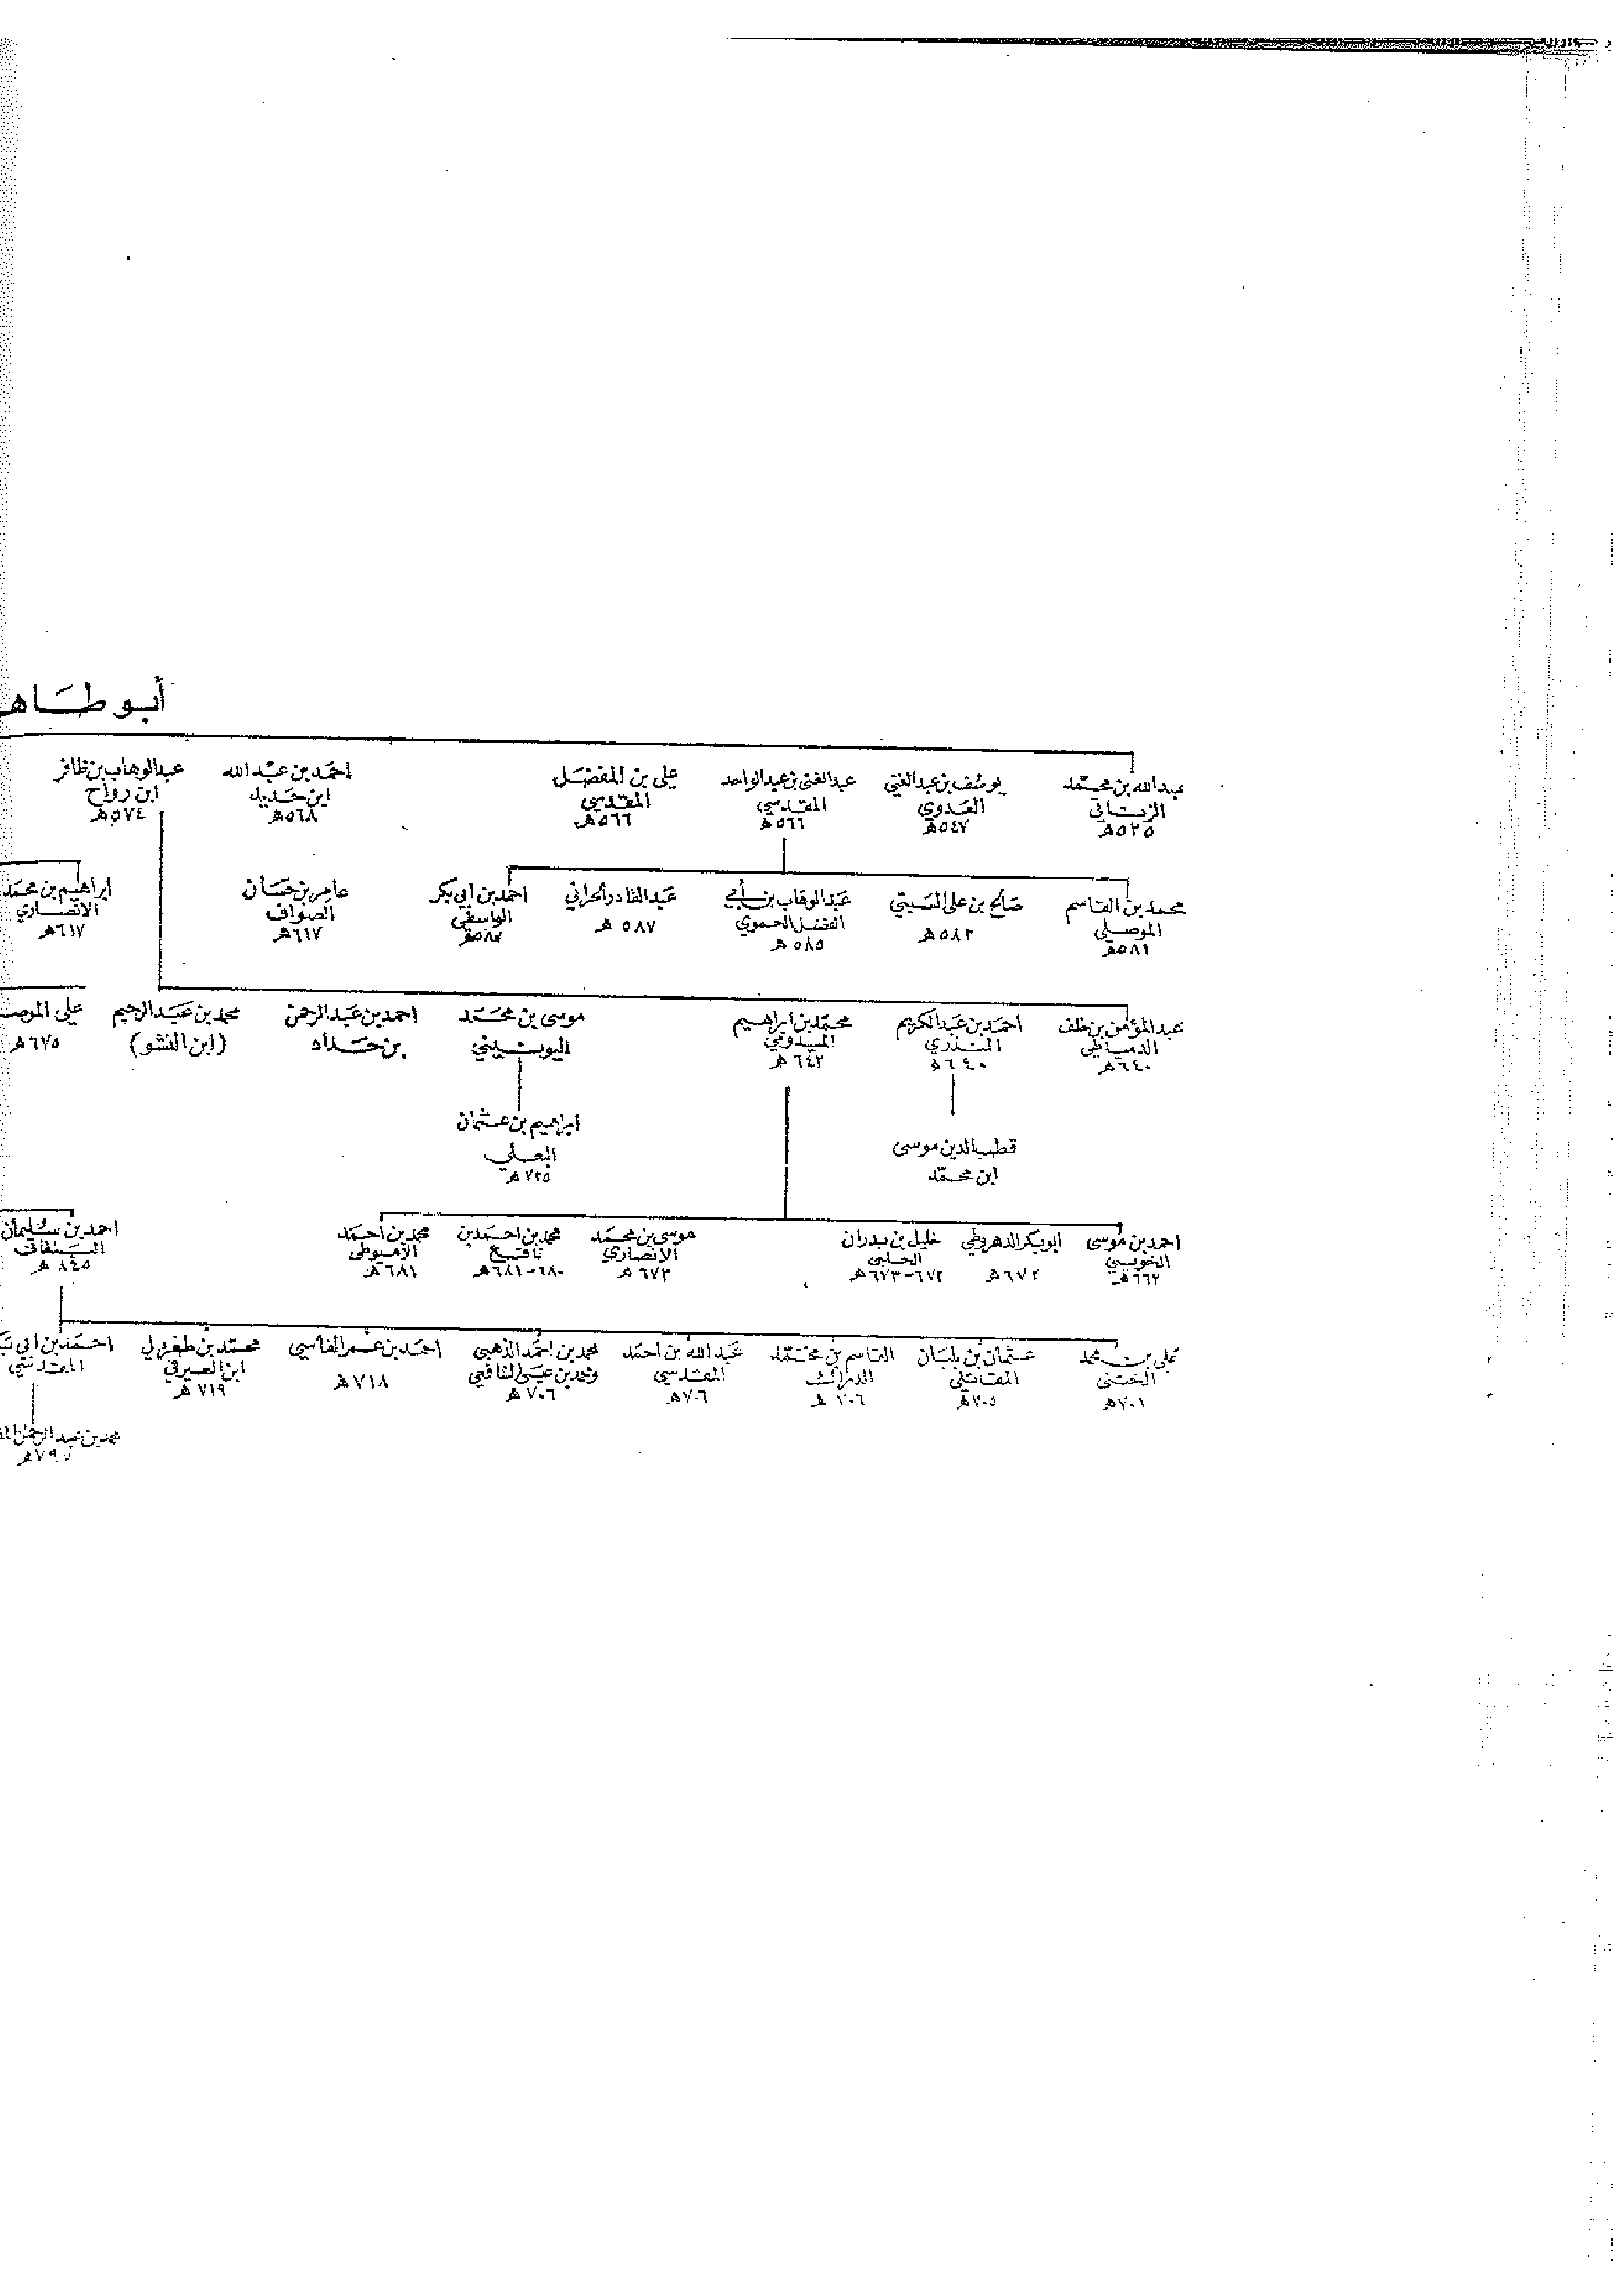 أبو طاهـ
عبدالله بن محمد
الزيناتي
٥٢٥هـ
يوسف بن عبدالغني
العدوي
٥٤٧هـ
عبدالغني بن عبدالواحد
المقدسي
٥٦٦هـ
علي بن المفضل
المقدسي
٥٦٦هـ
احمد بن عبدالله
ابن حديد
٥٦٨هـ
عبدالوهاب بن ظافر
ابن رواج
٥٧٤هـ
محمد بن القاسم
الموصلي
٥٨١هـ
صالح بن علي البستي
٥٨٢هـ
عبدالوهاب بن أبي
الفضل الحموي
٥٨٥هـ
عبدالقادر الحراني
٥٨٧ هـ
احمد بن ابي بكر
الواسطي
٥٨٧هـ
عامر بن حسان
الصواف
٦١٧هـ
ابراهيم بن محمد
الانصاري
٦١٧هـ
عبدالمؤمن بن خلف
الدمياطي
٦٤٠هـ
احمد بن عبدالكريم
المنذري
٦٤٠هـ
محمد بن ابراهيم
الميدومي
٦٤٢هـ
موسى بن محمد
اليونيني
احمد بن عبدالرحمن
بن حداد
محمد بن عبدالرحيم
(ابن النشو)
علي الموصـ
٦٧٥هـ
قطب الدين موسى
ابن محمد
ابراهيم بن عثمان
البعلي
٧٢٥هـ
احمد بن موسى
الخويي
٦٦٢هـ
ابوبكر الدهروطي
٦٧٢هـ
خليل بن بدران
الحلبي
٦٧٢-٦٧٣هـ
موسى بن محمد
الانصاري
٦٧٣هـ
محمد بن احمد بن
نافع
٦٨٠-٦٨١هـ
محمد بن احمد
الأميوطي
٦٨١هـ
احمد بن سليمان
٨٤٥هـ
علي بن محمد
الختني
٧٠١هـ
عثمان بن بلبان
المقاتلي
٧٠٥هـ
القاسم بن محمد
٧٠٦هـ
عبدالله بن احمد
المقدسي
٧٠٦هـ
محمد بن احمد الذهبي
ومحمد بن عيسى الشافعي
٧٠٦هـ
احمد بن عمر الفاسي
٧١٨هـ
محمد بن طغريل
ابن الصيرفي
٧١٩هـ
احمد بن ابي
المقدسي
محمد بن عبدالرحمن
٧٩٧هـ